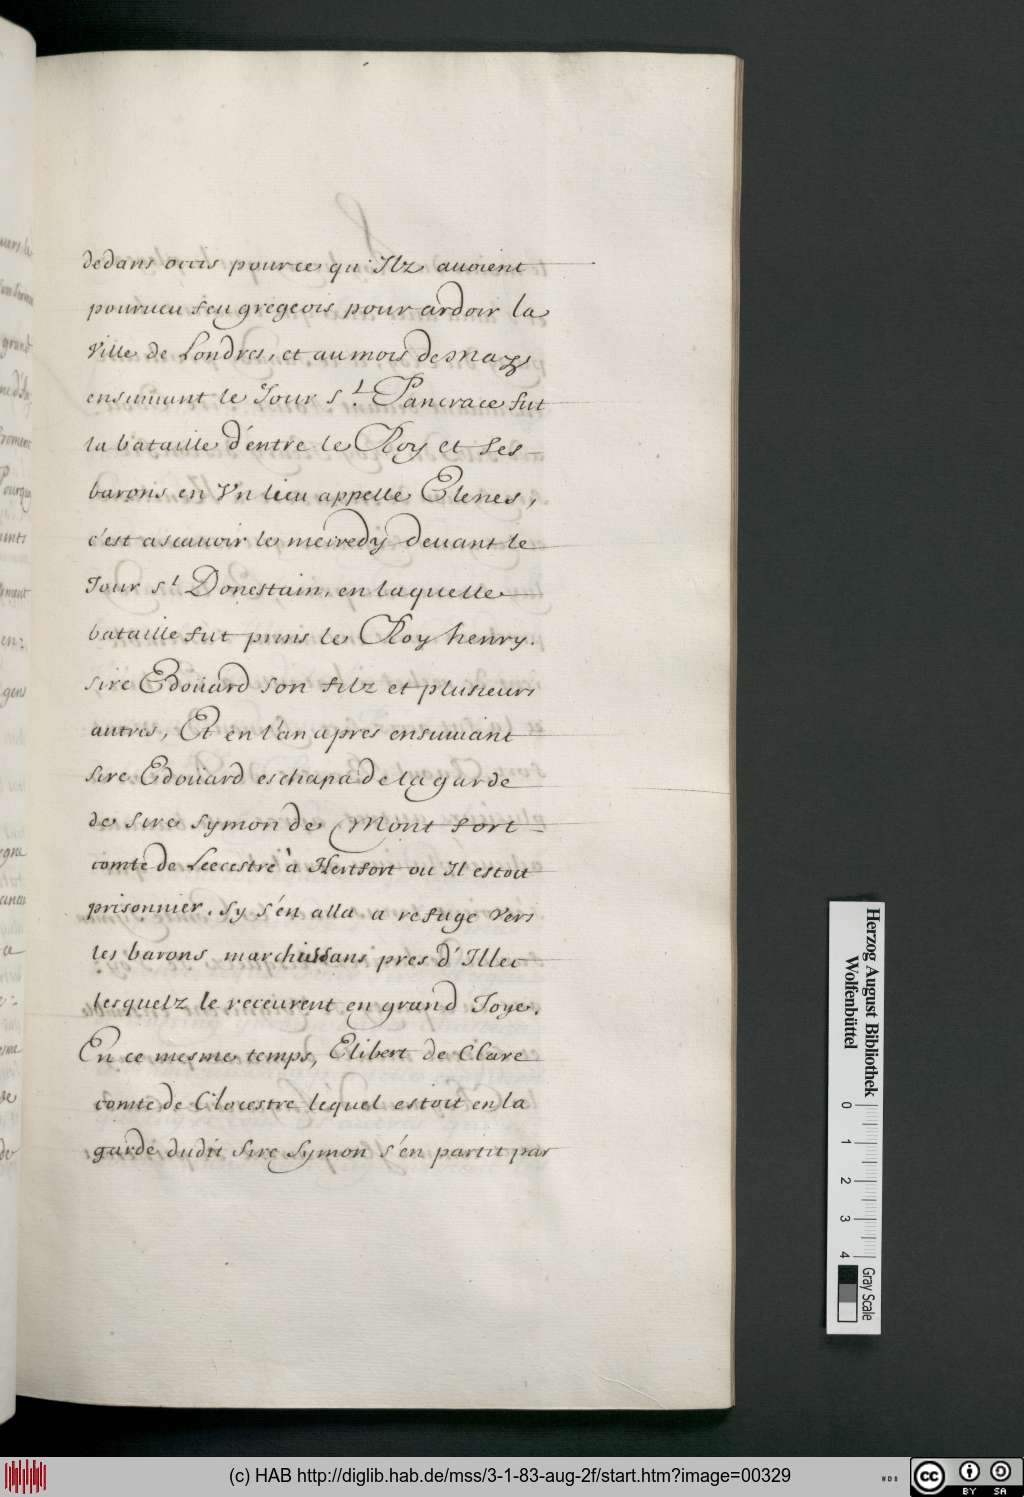 dedans occis pource qu'Ilz auoient
pourueu feu gregeois pour ardoir la
Ville de Londres, et au mois de may
ensuiuant le Jour s.t Pancrace fut
la bataille d'entre le Roy et ses
barons en Vn lieu appelle Elenes,
c'est ascauoir le meiredy deuant le
Jour s.t Donestain, en laquelle
bataille fut prins le Roy henry.
sire Edoüard son filz et plusieurs
autres, Et en l'an apres ensuiuant
sire Edoüard eschapa de la garde
de sire symon de Mont fort
comte de Leecestre à Hertfort ou Il estoit
prisonnier. sy s'en alla a refuge vers
les barons marchissans pres d'Illec
lesquelz le receurent en grand Joye.
En ce mesme temps, Elibert de Clare
comte de Clocestre lequel estoit en la
garde dudit sire symon s'en partit par
Herzog August Bibliothek
Wolfenbüttel
0 1 2 3 4
Gray Scale
(c) HAB http://diglib.hab.de/mss/3-1-83-aug-2f/start.htm?image=00329
cc BY SA